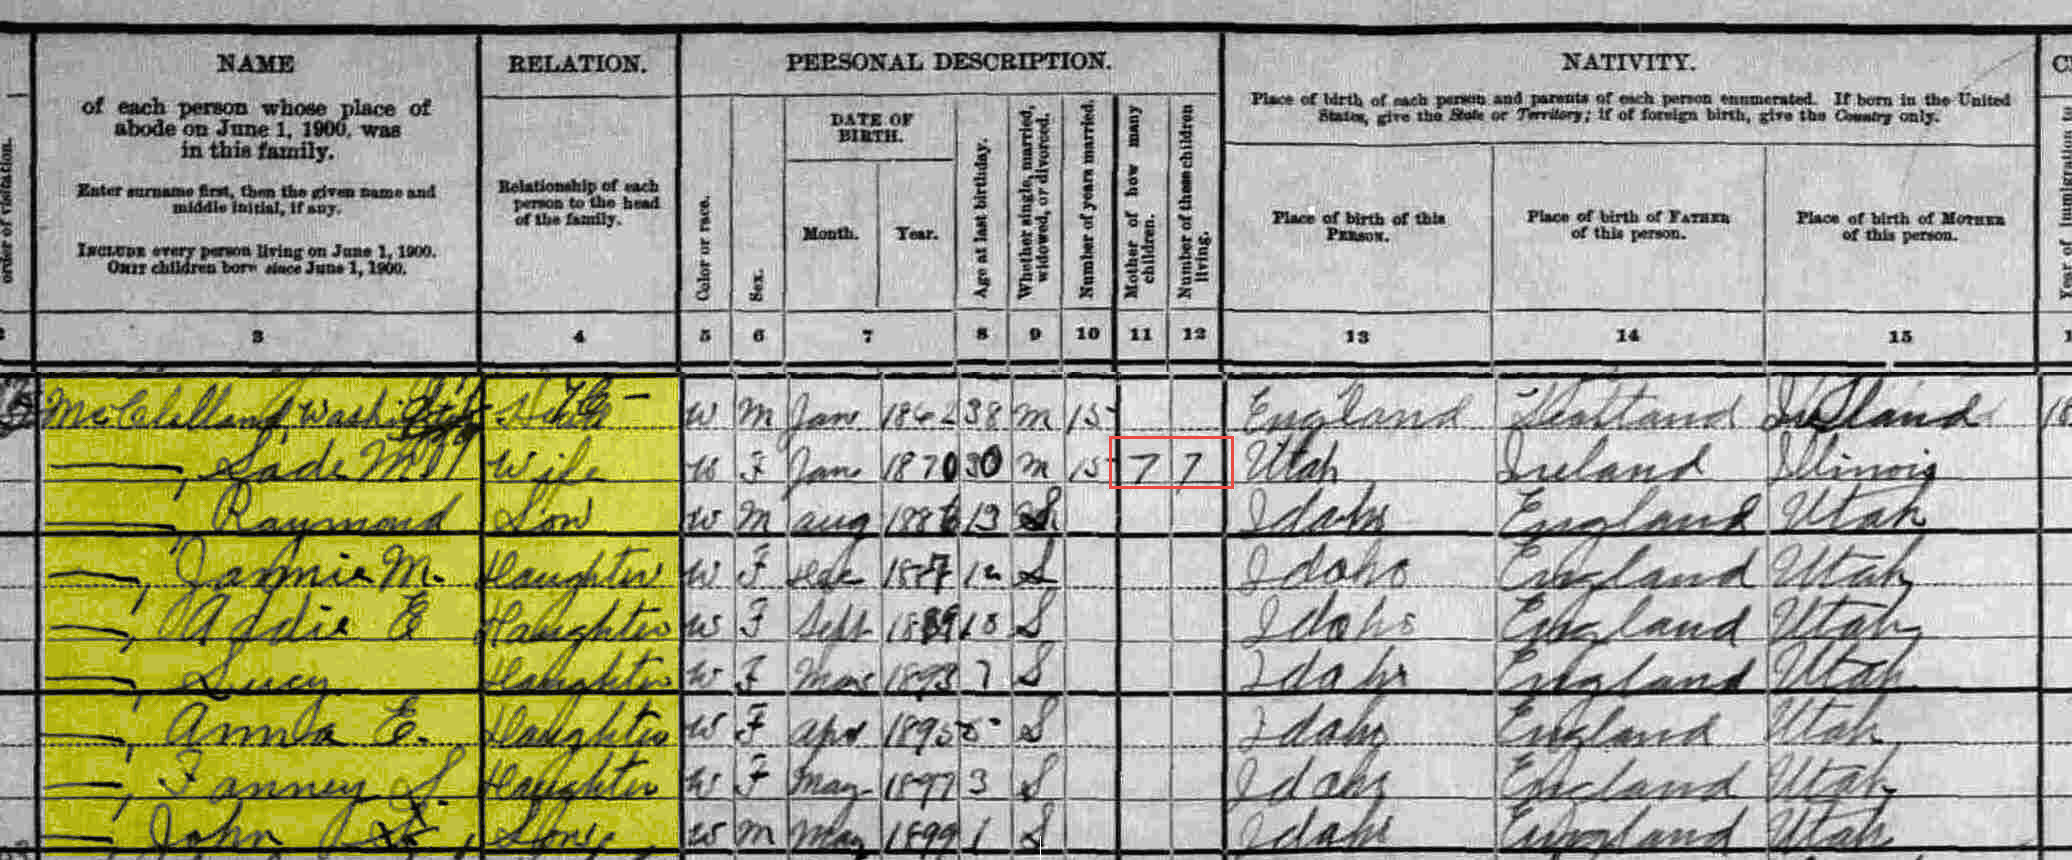 NAME
of each person whose place of
abode on June 1, 1900, was
in this family.
Enter surname first, then the given name and
middle initial, if any.
INCLUDE every person living on June 1, 1900.
OMIT children born since June 1, 1900.
RELATION.
Relationship of each
person to the head
of the family.
PERSONAL DESCRIPTION.
Color or race.
Sex.
DATE OF
BIRTH.
Month.
Year.
Age at last birthday.
Whether single, married,
widowed, or divorced.
Number of years married.
Mother of how many
children.
Number of these children
living.
NATIVITY.
Place of birth of each person and parents of each person enumerated. If born in the United
States, give the State or Territory; if of foreign birth, give the Country only.
Place of birth of this
PERSON.
Place of birth of FATHER
of this person.
Place of birth of MOTHER
of this person.
order of visitation.
Year of immigration
3 4 5 6 7 8 9 10 11 12 13 14 15
McClelland W M Jan 38 M 15 England Scotland
Sade M Wife W F Jan 1870 30 M 15 7 7 Utah Ireland Illinois
Raymond Son W M Aug 1886 13 S Idaho England Utah
Jannie M. Daughter W F Dec 1887 12 S Idaho England Utah
Addie E Daughter W F Sept 1889 10 S Idaho England Utah
Lucy Daughter W F Mar 1893 7 S Idaho England Utah
Anna E. Daughter W F Apr 1895 5 S Idaho England Utah
Fanney S. Daughter W F May 1897 3 S Idaho England Utah
John W M May 1899 1 S Idaho England Utah